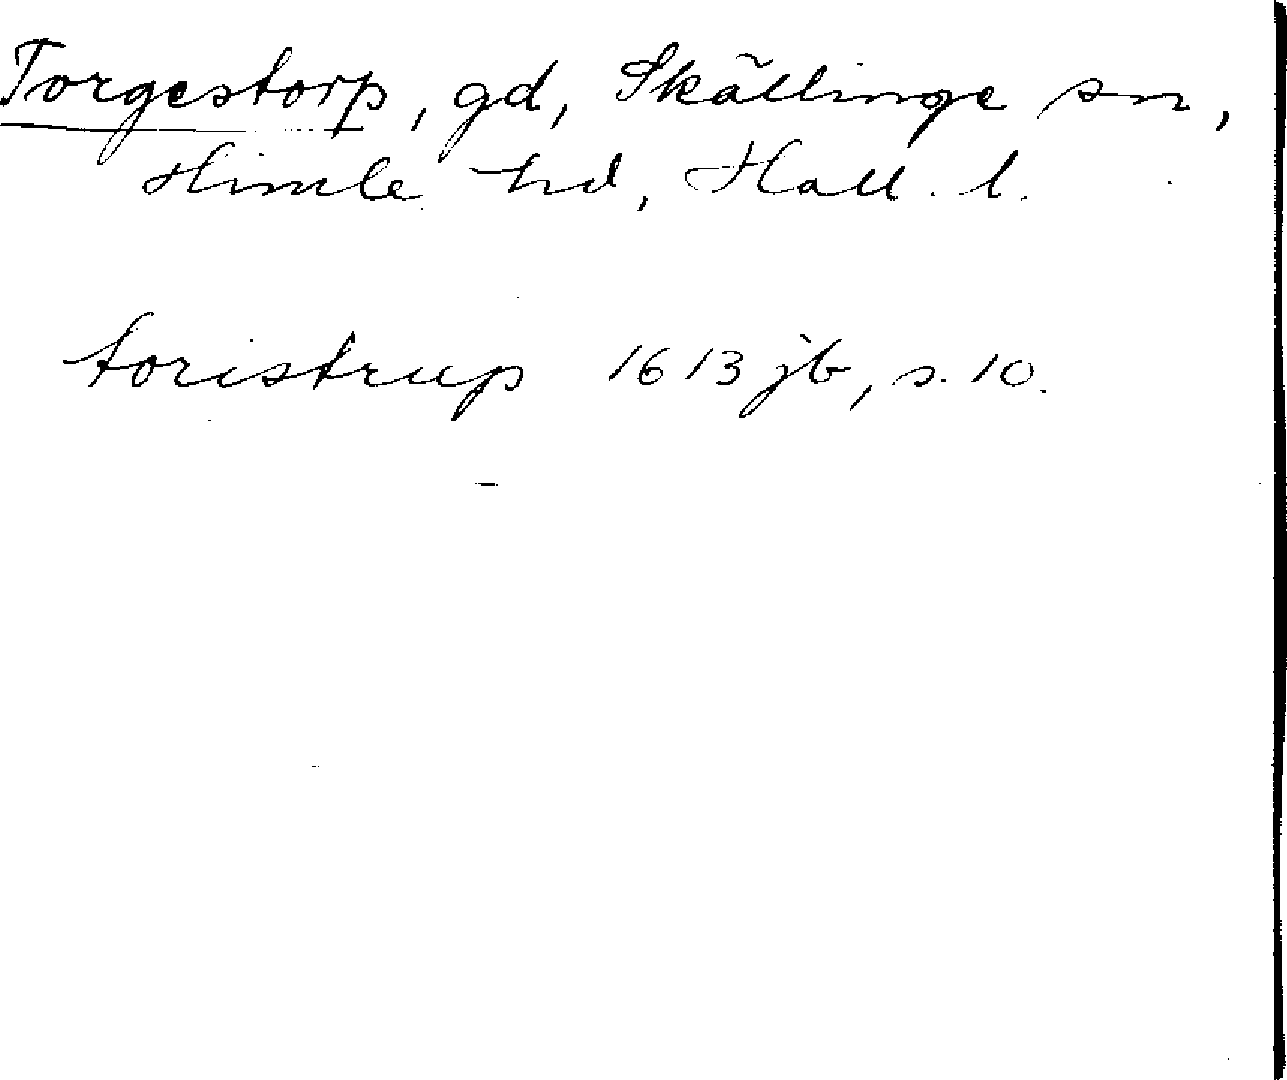 Torgestorp, gd, Skällinge sn,
Himle hd, Hall. l.
toristrup 1613 jb, s. 10.